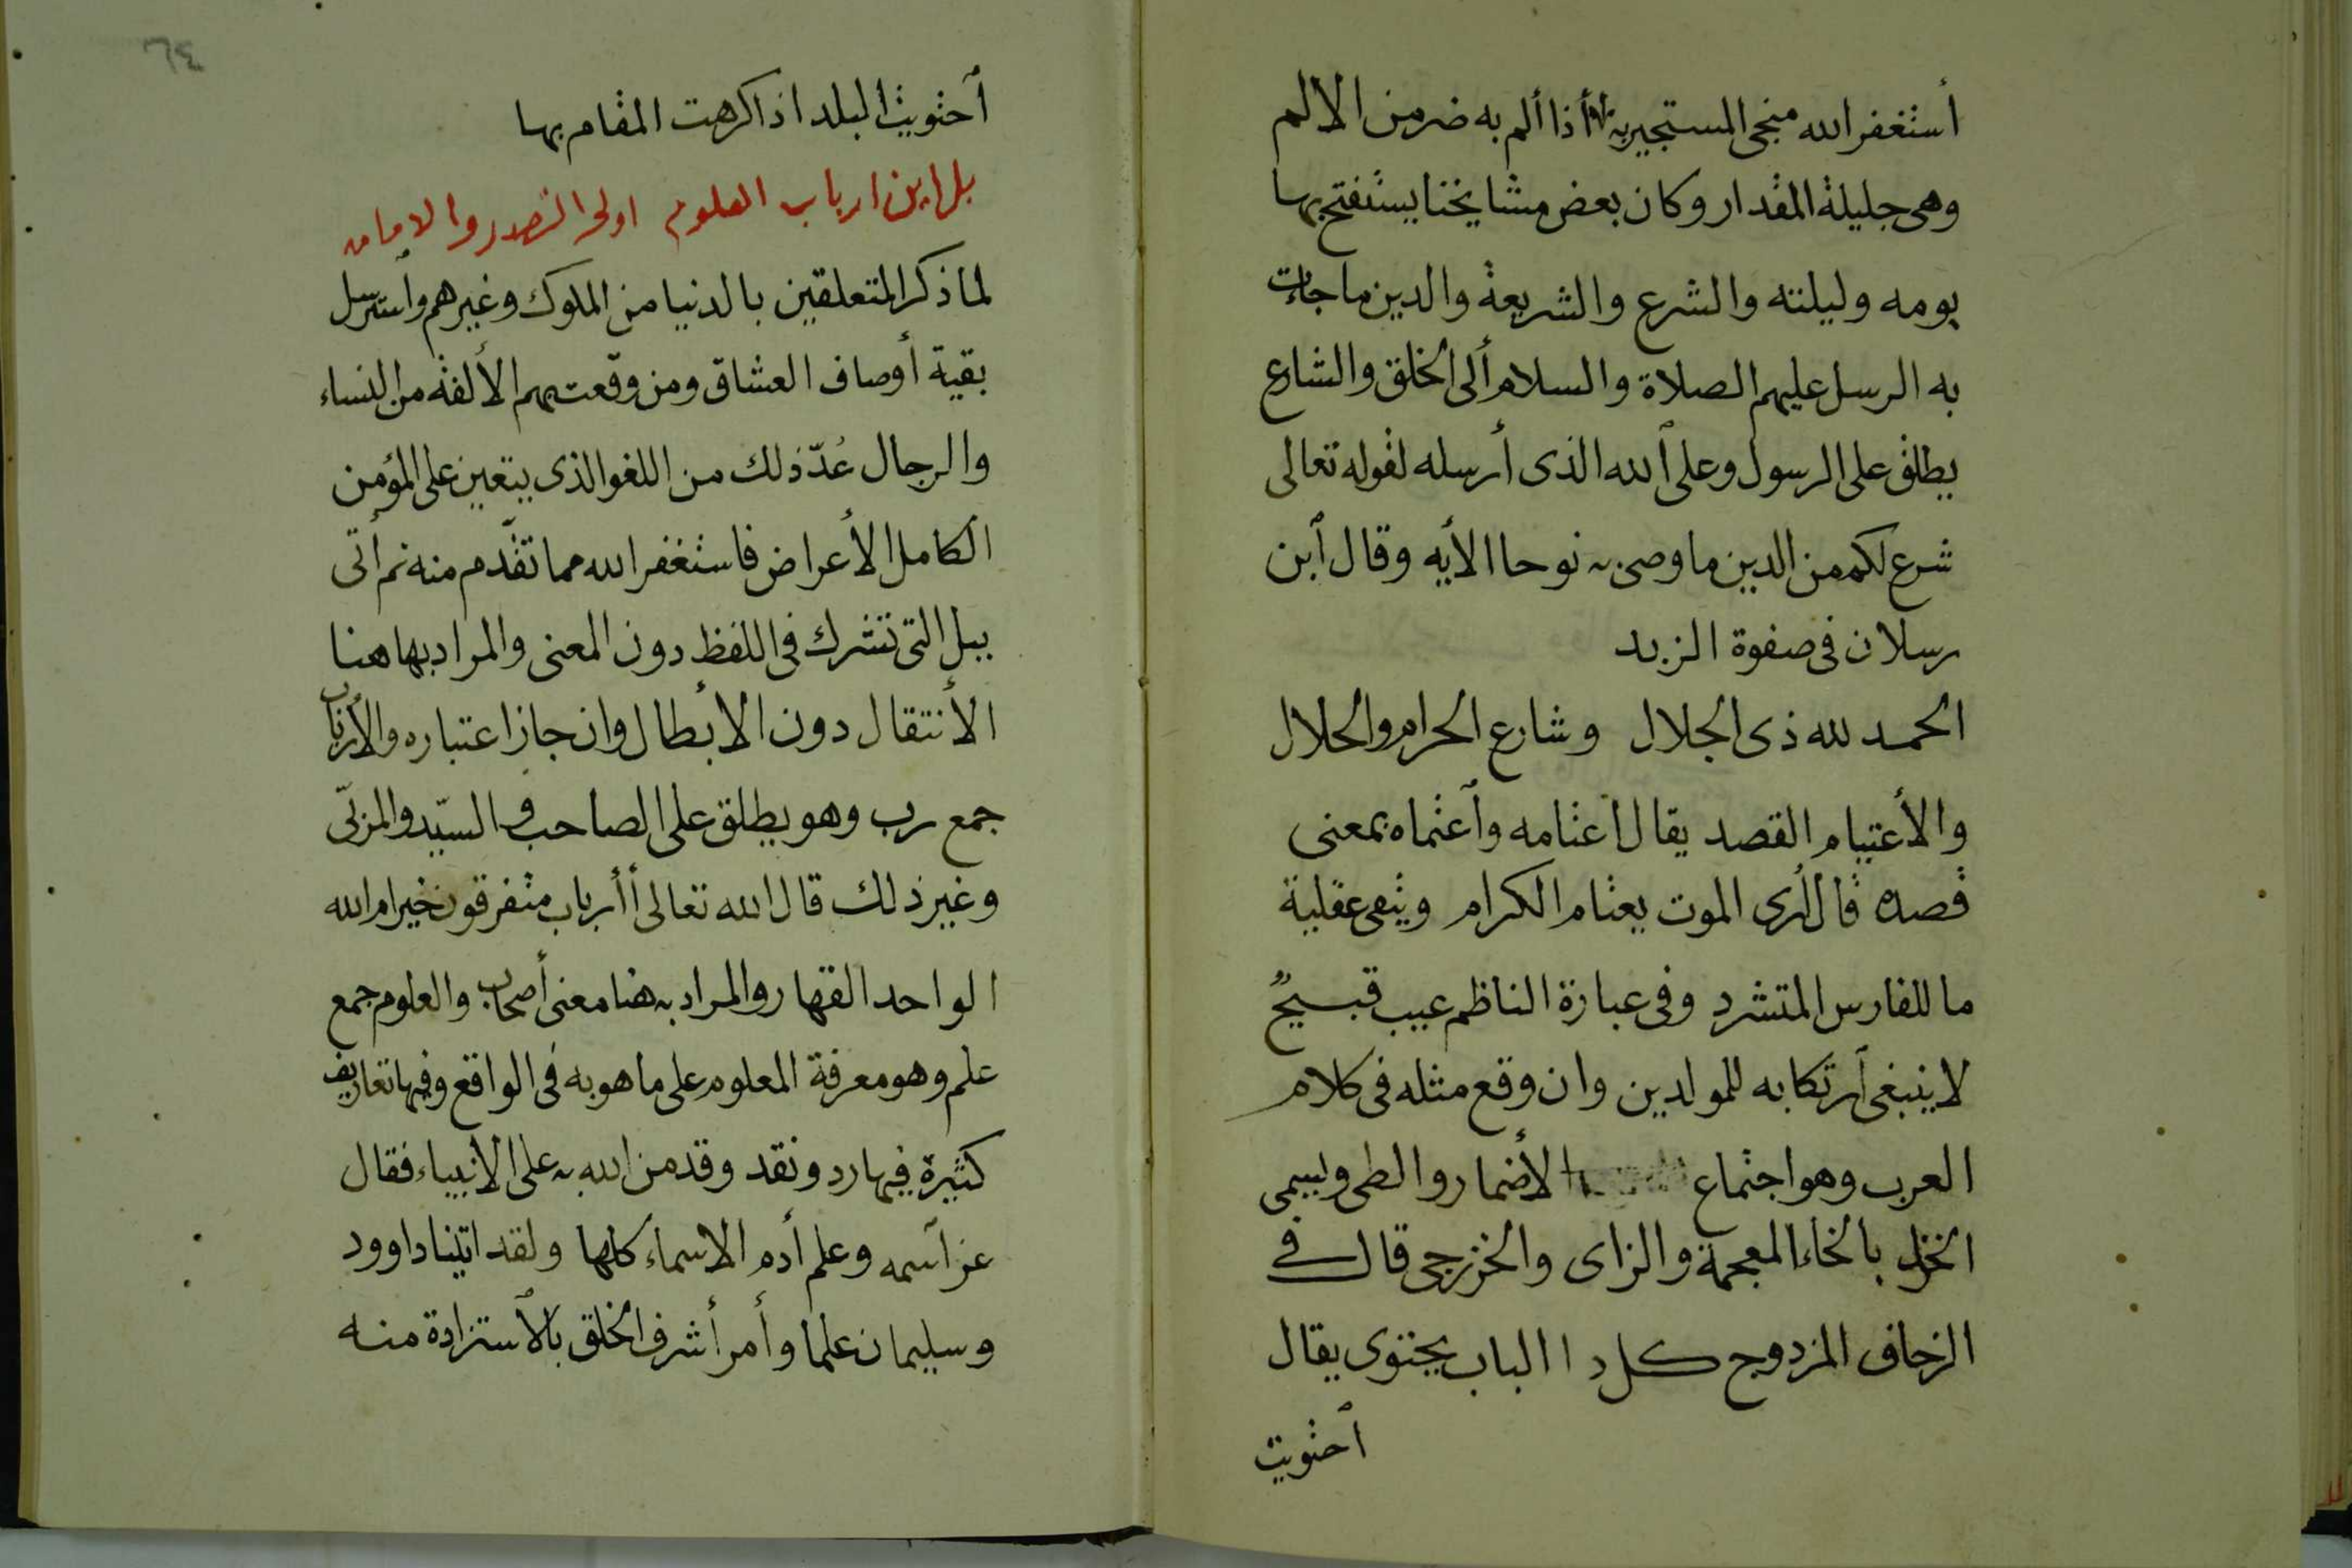 أستغفر الله منجى المستجير به أذا ألم به ضر من الالم
وهى جليلة المقدار وكان بعض مشايخنا يستفتح بها
يومه وليلته والشرع والشريعة والدين ما جاءت
به الرسل عليهم الصلاة والسلام ألى الخلق والشارع
يطلق على الرسول وعلى الله الذى أرسله لقوله تعالى
شرع لكم من الدين ما وصى به نوحا الأيه وقال أبن
رسلان فى صفوة الزبد
الحمد لله ذى الجلال وشارع الحرام والحلال
والأعتيام القصد يقال اعتامه وأعتماه بمعنى
قصده قال أرى الموت يعتام الكرام ويتقى عقلية
ما للفارس المتشرد وفى عبارة الناظم عيب قبيح
لا ينبغى أرتكابه للمولدين وان وقع مثله فى كلام
العرب وهو اجتماع الأضمار والطى ويسمى
الخزل بالخاء المعجمة والزاى والخزرجى قال فى
الزحاف المزدوج كل دا الباب يجتوى يقال
أحتويت
٦٤
أحتويت البلد اذا كرهت المقام بها
بل اين ارباب العلوم اولى التصدر والامامه
لما ذكر المتعلقين بالدنيا من الملوك وغيرهم وأسترسل
بقية أوصاف العشاق ومن وقعت بهم الألفة من النساء
والرجال عُدّ ذلك من اللغو الذى يتعين على المؤمن
الكامل الأعراض فاستغفر الله مما تقدّم منه ثم أتى
ببل التى تشرك فى اللفظ دون المعنى والمراد بها هنا
الأنتقال دون الأبطال وان جاز اعتباره والأرباب
جمع رب وهو يطلق على الصاحب والسيّد والمربّى
وغير ذلك قال الله تعالى أأرباب متفرقون خير ام الله
الواحد القهار والمراد به هنا معنى أصحاب والعلوم جمع
علم وهو معرفة المعلوم على ما هو به فى الواقع وفيها تعاريف
كثيرة فيها رد ونقد وقد من الله به على الأنبياء فقال
عز أسمه وعلم أدم الاسماء كلها ولقد اتينا داوود
وسليمان علما وأمر أشرف الخلق بالأستزادة منه